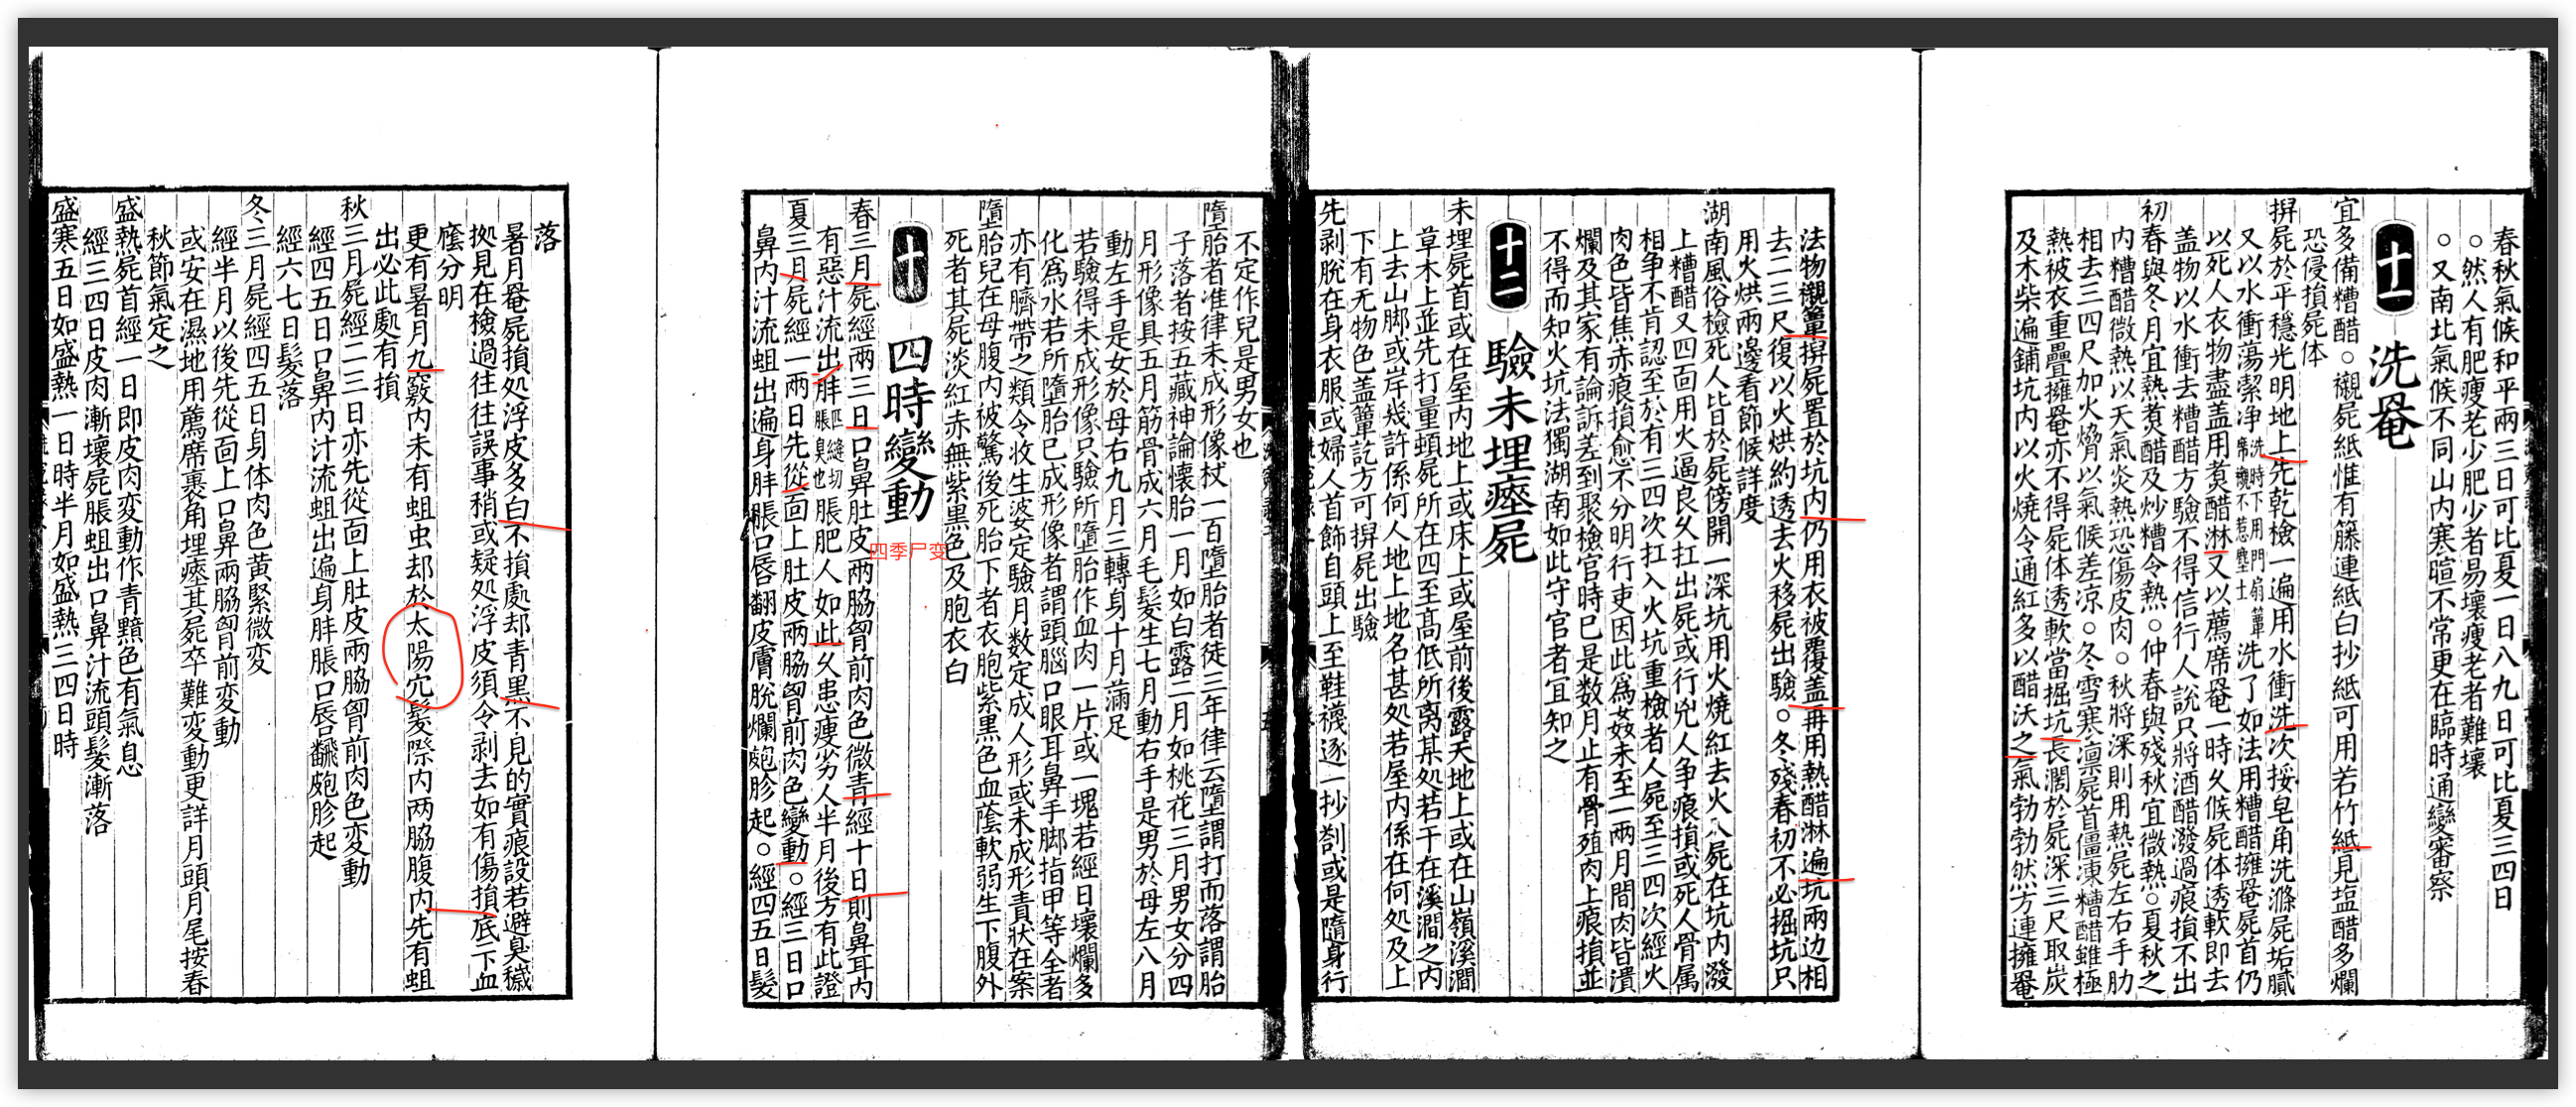 春秋氣候和平兩三日可比夏一日八九日可比夏三四日
○然人有肥瘦老少肥少者易壞瘦老者難壞
○又南北氣候不同山内寒暄不常更在臨時通變審察
十一
洗罨
宜多備糟醋○襯屍紙惟有籐連紙白抄紙可用若竹紙見塩醋多爛
恐侵損屍体
搿屍於平穩光明地上先乾檢一遍用水衝洗次挼皂角洗滌屍垢膩
又以水衝蕩潔净洗時下用門扇簟席襯不惹塵土洗了如法用糟醋擁罨屍首仍
以死人衣物盡盖用煑醋淋又以薦席罨一時久候屍体透軟即去
盖物以水衝去糟醋方驗不得信行人說只將酒醋潑過痕損不出
初春與冬月宜熱煑醋及炒糟令熱○仲春與殘秋宜微熱○夏秋之
内糟醋微熱以天氣炎熱恐傷皮肉○秋將深則用熱屍左右手肋
相去三四尺加火熁以氣候差凉○冬雪寒凛屍首僵凍糟醋雖極
熱被衣重疊擁罨亦不得屍体透軟當掘坑長濶於屍深三尺取炭
及木柴遍鋪坑内以火燒令通紅多以醋沃之氣勃勃然方連擁罨
法物襯簟搿屍置於坑内仍用衣被覆盖再用熱醋淋遍坑兩边相
去二三尺復以火烘約透去火移屍出驗○冬殘春初不必掘坑只
用火烘兩邊看節候詳度
湖南風俗檢死人皆於屍傍開一深坑用火燒紅去火入屍在坑内潑
上糟醋又四面用火逼良久扛出屍或行兇人争痕損或死人骨属
相争不肯認至於有三四次扛入火坑重檢者人屍至三四次經火
肉色皆焦赤痕損愈不分明行吏因此為姦未至一兩月間肉皆潰
爛及其家有論訴差到聚檢官時巳是数月止有骨殖肉上痕損並
不得而知火坑法獨湖南如此守官者宜知之
十二
驗未埋瘞屍
未埋屍首或在屋内地上或床上或屋前後露天地上或在山嶺溪澗
草木上並先打量頓屍所在四至高低所离某処若干在溪澗之内
上去山脚或岸幾許係何人地上地名甚処若屋内係在何処及上
下有无物色盖簟訖方可搿屍出驗
先剥脫在身衣服或婦人首飾自頭上至鞋襪逐一抄劄或是隨身行
不定作兒是男女也
墮胎者准律未成形像杖一百墮胎者徒三年律云墮謂打而落謂胎
子落者按五藏神論懷胎一月如白露二月如桃花三月男女分四
月形像具五月筋骨成六月毛髮生七月動右手是男於母左八月
動左手是女於母右九月三轉身十月滿足
若驗得未成形像只驗所墮胎作血肉一片或一塊若經日壞爛多
化為水若所墮胎巳成形像者謂頭腦口眼耳鼻手脚指甲等全者
亦有臍帶之類令收生婆定驗月数定成人形或未成形責狀在案
墮胎兒在母腹内被驚後死胎下者衣胞紫黑色血䕃軟弱生下腹外
死者其屍淡紅赤無紫黑色及胞衣白
十
四時變動
四季尸变
春三月屍經兩三日口鼻肚皮兩脇胷前肉色微青經十日則鼻耳内
有惡汁流出胖匹縫切脹臭也脹肥人如此久患瘦劣人半月後方有此證
夏三月屍經一兩日先從面上肚皮兩脇胷前肉色變動○經三日口
鼻内汁流蛆出遍身胖脹口唇翻皮膚脫爛皰胗起○經四五日髮
落
暑月罨屍損処浮皮多白不損處却青黒不見的實痕設若避臭穢
拠見在檢過往往誤事稍或疑処浮皮須令剥去如有傷損底下血
䕃分明
更有暑月九竅内未有蛆虫却於太陽穴髮際内两脇腹内先有蛆
出必此處有損
秋三月屍經二三日亦先從面上肚皮兩脇胷前肉色変動
經四五日口鼻内汁流蛆出遍身胖脹口唇飜皰胗起
經六七日髮落
冬三月屍經四五日身体肉色黄緊微変
經半月以後先從面上口鼻兩脇胷前变動
或安在濕地用薦席裹角埋瘞其屍卒難变動更詳月頭月尾按春
秋節氣定之
盛熱屍首經一日即皮肉变動作青黯色有氣息
經三四日皮肉漸壞屍脹蛆出口鼻汁流頭髮漸落
盛寒五日如盛熱一日時半月如盛熱三四日時